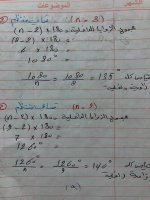 الموضوعات
(n = 8)
مجموع الزوايا الداخلية = (n - 2) × 180
(8 - 2) × 180
6 × 180
1080°
1080/n = 1080/8 = 135°
(n = 9)
مجموع الزوايا الداخلية = (n - 2) × 180
(9 - 2) × 180
7 × 180
1260°
1260°/n = 1260°/9 = 140°